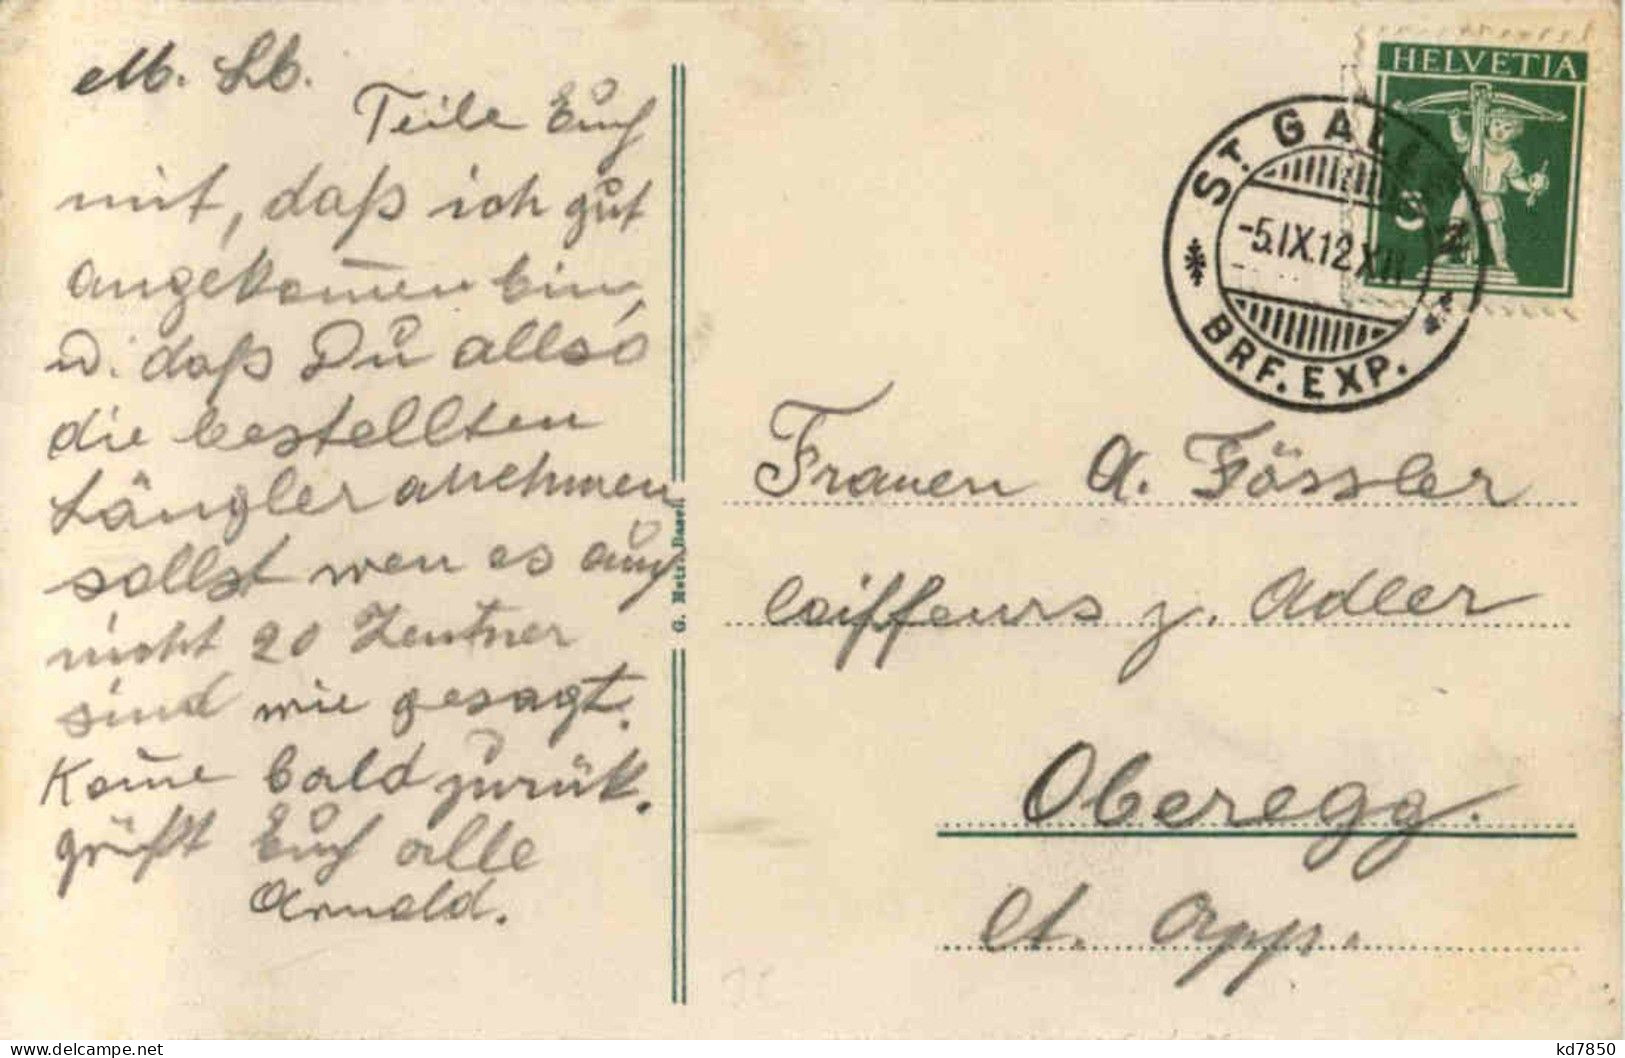 M. Lb.
Teile Euch
mit, daß ich gut
angekom̅en bin,
u. daß Du allso
die bestellten
Längler annehmen
sollst wen es auch
nicht 20 Zentner
sind wie gesagt.
Kom̅e bald zurük.
grüßt Euch alle
Arnold.
G. Metz, Basel
HELVETIA
5
ST. GALLEN
-5.IX.12.XII
BRF. EXP.
Frauen A. Fässler
Coiffeurs z. Adler
Oberegg.
Ct. App.
kd7850